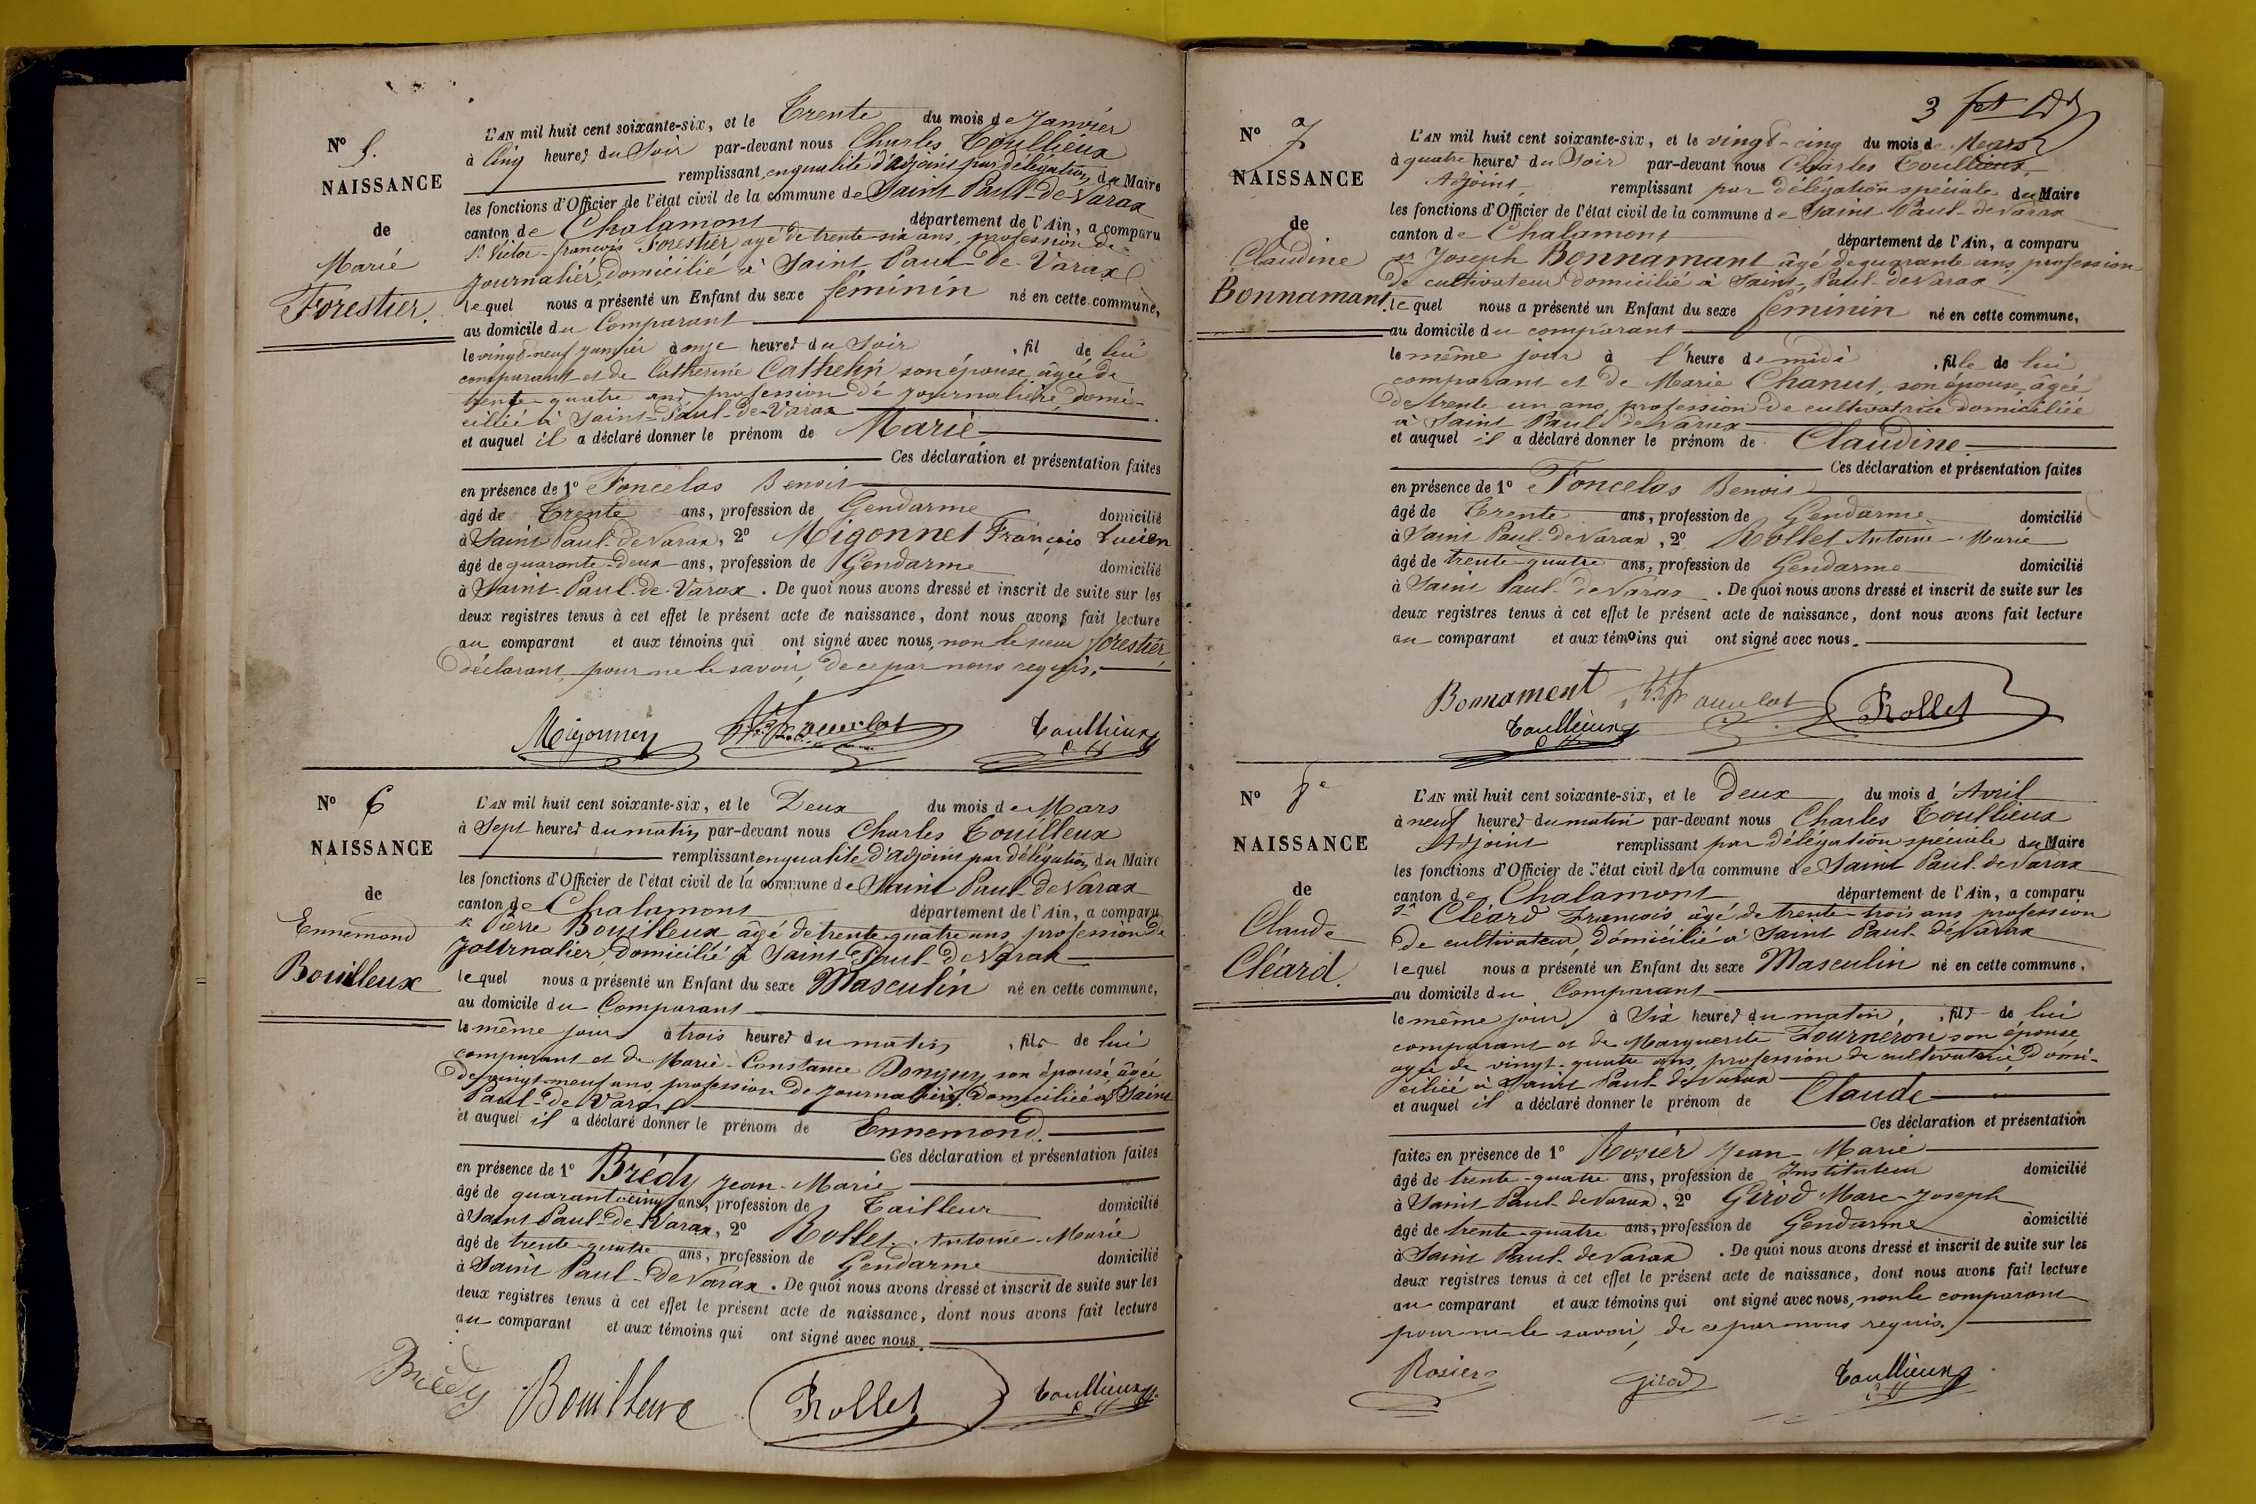 N° 5.
NAISSANCE
de
Marie
Forestier.
L'AN mil huit cent soixante-six, et le Trente du mois de Janvier
à Cinq heures du Soir par-devant nous Charles Toullieux
remplissant en qualité d'adjoint par délégation du Maire
les fonctions d'Officier de l'état civil de la commune de Saint Paul-de-Varax
canton de Chalamont département de l'Ain, a comparu
Sr Victor-françois Forestier agé de trente-six ans, profession de
journalier, domicilié à Saint Paul-de-Varax
lequel nous a présenté un Enfant du sexe féminin né en cette commune,
au domicile du Comparant
le vingt-neuf janvier à onze heures du Soir , fil de lui
comparant et de Catherine Cathelin son épouse âgée de
trente-quatre ans, profession de journalière, domi-
ciliée à Saint-Paul-de-Varax
et auquel il a déclaré donner le prénom de Marie
Ces déclaration et présentation faites
en présence de 1° Foncelas Benoit
âgé de Trente ans, profession de Gendarme domicilié
à Saint Paul-de Varax, 2° Migonnet François Lucien
âgé de quarante-deux ans, profession de Gendarme domicilié
à Saint-Paul-de-Varax. De quoi nous avons dressé et inscrit de suite sur les
deux registres tenus à cet effet le présent acte de naissance, dont nous avons fait lecture
au comparant et aux témoins qui ont signé avec nous, non le sieur forestier
déclarant, pour ne le savoir, de ce par nous requis.
Toullieux
N° 6
NAISSANCE
de
Ennemond
Bouilleux
L'AN mil huit cent soixante-six, et le Deux du mois de Mars
à Sept heures du matin par-devant nous Charles Toullieux
remplissant en qualité d'adjoint par délégation du Maire
les fonctions d'Officier de l'état civil de la commune de Saint Paul-de Varax
canton de Chalamont département de l'Ain, a comparu
sr Pierre Bouilleux âgé de trente-quatre ans, profession de
journalier, domicilié à Saint-Paul-de Varax
lequel nous a présenté un Enfant du sexe Masculin né en cette commune,
au domicile du Comparant
le même jour à trois heures du matin , fils de lui
comparant et de Marie-Constance son épouse, âgée
de vingt-neuf ans, profession de journalière, domiciliée à Saint
Paul-de Varax
et auquel il a déclaré donner le prénom de Ennemond.
Ces déclaration et présentation faites
en présence de 1° Brédy Jean-Marie
âgé de quarante-cinq ans, profession de Tailleur domicilié
à Saint Paul-de Varax, 2° Rollet Antoine-Marie
âgé de trente-quatre ans, profession de Gendarme domicilié
à Saint Paul-de Varax. De quoi nous avons dressé et inscrit de suite sur les
deux registres tenus à cet effet le présent acte de naissance, dont nous avons fait lecture
au comparant et aux témoins qui ont signé avec nous.
Brédy Bouilleux Rollet Toullieux
3
N° 7
NAISSANCE
de
Claudine
Bonnamant.
L'AN mil huit cent soixante-six, et le vingt-cinq du mois de Mars
à quatre heures du Soir par-devant nous Charles Toullieux,
Adjoint, remplissant par délégation spéciale du Maire
les fonctions d'Officier de l'état civil de la commune de Saint Paul-de Varax
canton de Chalamont département de l'Ain, a comparu
sr Joseph Bonnamant âgé de quarante ans, profession
de cultivateur domicilié à Saint-Paul-de Varax
lequel nous a présenté un Enfant du sexe feminin né en cette commune,
au domicile du comparant
le même jour à l'heure de midi , fille de lui
comparant et de Marie Chanut, son épouse, âgée
de trente un ans, profession de cultivatrice domiciliée
à Saint Paul de Varax
et auquel il a déclaré donner le prénom de Claudine
Ces déclaration et présentation faites
en présence de 1° Foncelas Benoit
âgé de Trente ans, profession de Gendarme domicilié
à Saint Paul-de Varax, 2° Rollet Antoine-Marie
âgé de trente-quatre ans, profession de Gendarme domicilié
à Saint Paul-de Varax. De quoi nous avons dressé et inscrit de suite sur les
deux registres tenus à cet effet le présent acte de naissance, dont nous avons fait lecture
au comparant et aux témoins qui ont signé avec nous.
Bonnament Rollet
Toullieux
N° 8e
NAISSANCE
de
Claude
Cléard.
L'AN mil huit cent soixante-six, et le Deux du mois d'Avril
à neuf heures du matin par-devant nous Charles Toullieux
Adjoint remplissant par délégation spéciale du Maire
les fonctions d'Officier de l'état civil de la commune de Saint Paul-de Varax
canton de Chalamont département de l'Ain, a comparu
Sr Cléard François âgé de trente-trois ans profession
de cultivateur, domicilié à Saint Paul-de Varax
lequel nous a présenté un Enfant du sexe Masculin né en cette commune,
au domicile du Comparant
le même jour à Six heures du matin , fils de lui
comparant et de Marguerite Fourneron son épouse
agée de vingt-quatre ans, profession de cultivatrice, domi-
ciliée à Saint Paul-de Varax
et auquel il a déclaré donner le prénom de Claude
Ces déclaration et présentation
faites en présence de 1° Rosier Jean-Marie
âgé de trente-quatre ans, profession de Instituteur domicilié
à Saint Paul de Varax, 2° Girod Marc-Joseph
âgé de trente-quatre ans, profession de Gendarme domicilié
à Saint Paul-de Varax. De quoi nous avons dressé et inscrit de suite sur les
deux registres tenus à cet effet le présent acte de naissance, dont nous avons fait lecture
au comparant et aux témoins qui ont signé avec nous, non le comparant
pour ne le savoir, de ce par nous requis.
Rosier Girod Toullieux